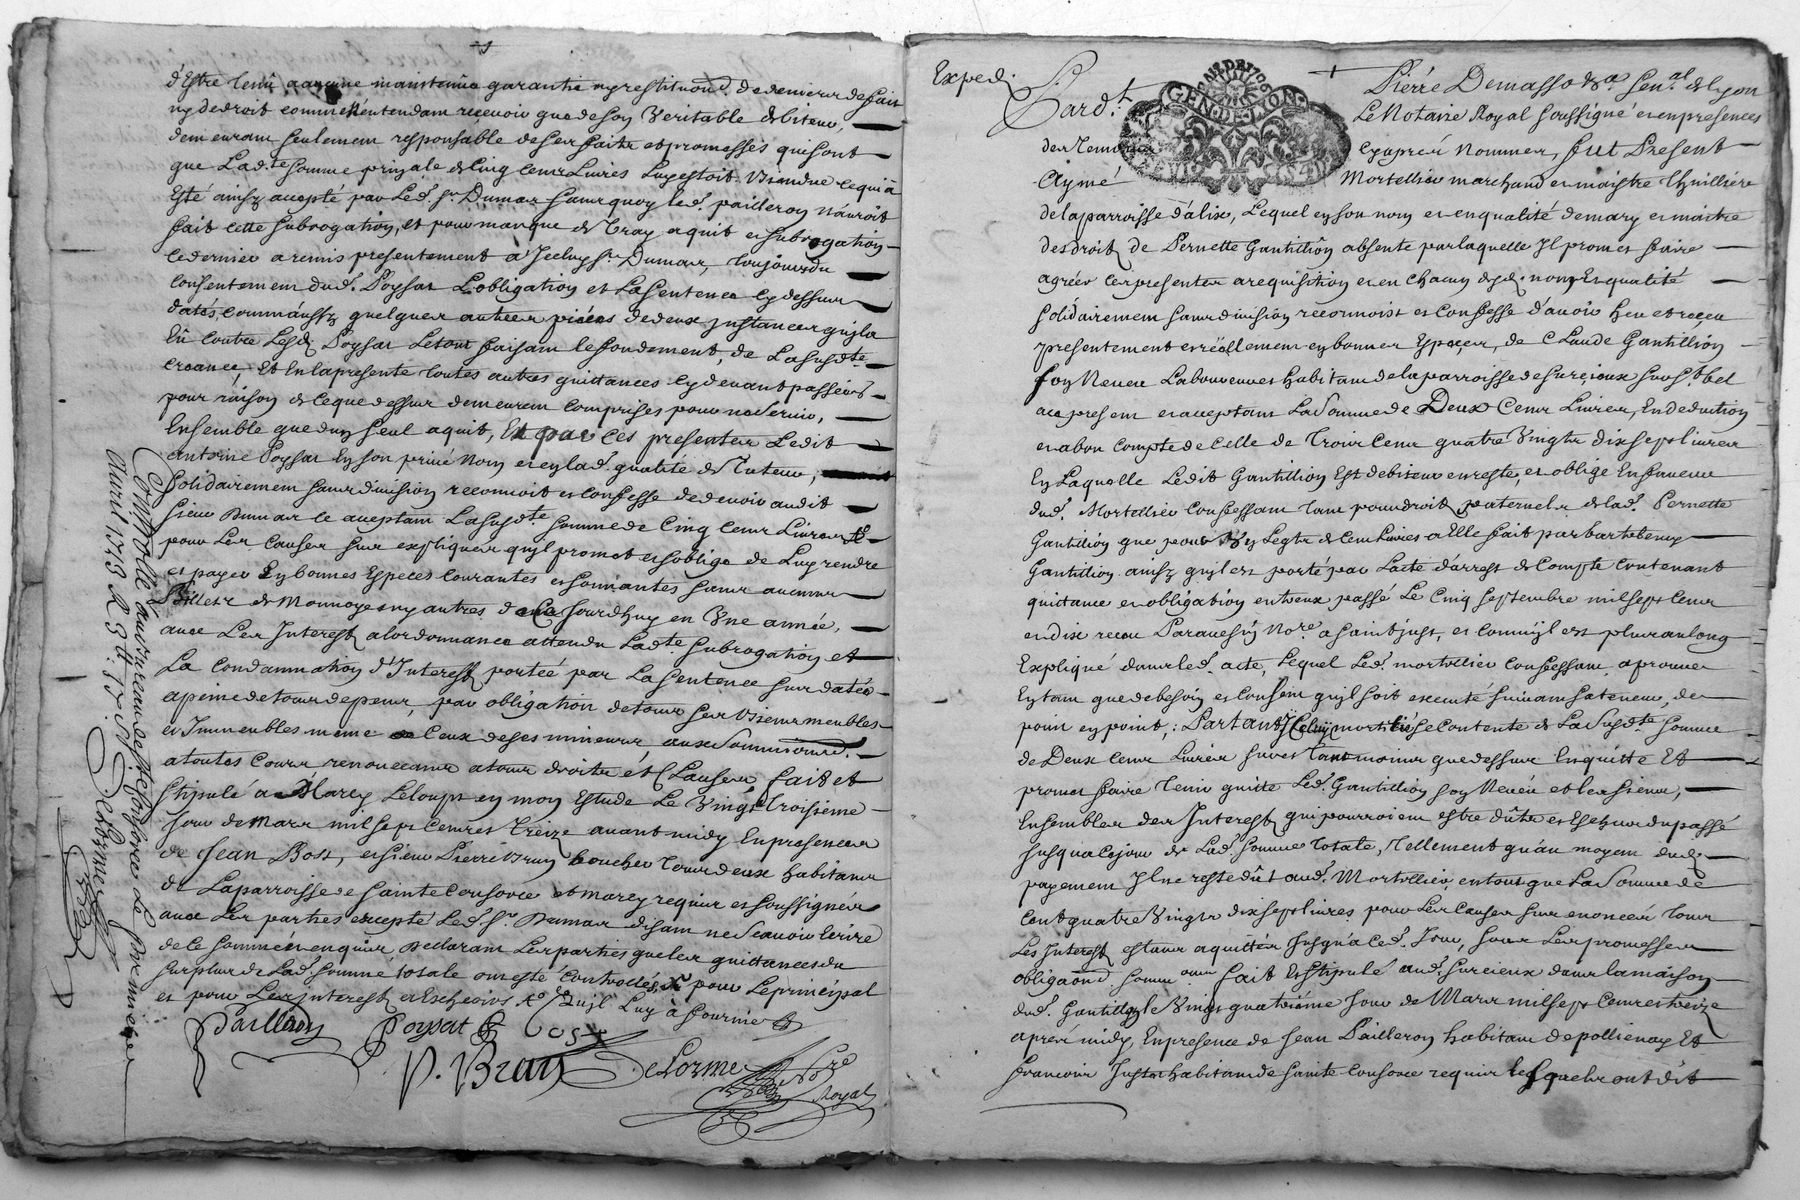 d'Estre tenû a aucune maintenüe garantie ny restituond de deniers de fait
ny de droit comme Nentendam recevoir que de son Veritable debiteur,
demeuram seulement responsable de ses faits et promesses qui sont
que Lad.te somme prin̄ale de Cinq Cens Livres Luy estoit bien düe ce qui a
Esté ainsy accepté par Led. sr. Dumas sans quoy led. pailleron n'auroit
fait cette subrogation, et pour marque de vray aquit et subrogation
ce dernier a remis presentement a Jceluy sr. Dumas, toujours du
consentement dud. Poysat L'obligation et La sentence cy dessus
datés, comm'aussy quelques autres pieces de deux Jnstances qu'il a
Eû contre Lesd. Poysat Le tout faisam le fondement, de La susd.te
creance, Et En la presente toutes autres quittances cy devant passées
pour raison de ce que dessus demeurem comprises pour ne servir,
Ensemble que d'un seul aquit, Et par Ces presentes Ledit
Antoine Poysat En son privé nom et en lad. qualité de Tuteur,
solidairement sans division reconnoit et confesse de devoir audit
sieur Dumas ce acceptam La susd.te somme de Cinq Cens Livres
pour Les Causes sus expliquées qu'il promet et s'oblige de Luy rendre
et payer En bonnes Especes Courantes et sonnantes sans aucuns
Billets de Monnoye ny autres d'aujourdhuy en Une année,
avec Les Interest a l'ordonnance attendu Lad.te subrogation et
La Condamnation d'Interest portée par La sentence sus datée
a peine de tous depens, par obligation de tous ses biens meubles
et Immeubles même de Ceux de ses mineurs, aux soumissions
a toutes Cours renonceans a tous droits et Clauses fait et
stipulé a Marcy Leloups en mon Estude Le Vingt troisième
jour de Mars mil sept Cens et treize avant midy En presences
de Jean Bost, et sieur Pierre Brun boucher tous deux habitans
de La parroisse de sainte Consorce et Marcy requis et soussignés
avec Les parties excepté Led. sr. Dumas disam ne scavoir Ecrire
de ce sommé et enquis, Declaram Les parties que les quittances du
surplus de Lad. somme totale ont esté Controllés, pour Le principal
et pour Les Interest Luy a fournie
Pailleron Poysat Bost
P. Brun Delorme No.re Royal
Controllé au Bureau de Ste Consorce Le premier
Avril 1713 R
Delorme
Exped.
Pard.t
GEN. DE LYON
Pierre Demasso
Le Notaire Royal soussigné et en presences
des temoins cy aprés nommés, fut Present
Aymé Mortellier marchand et maistre thuillier
de la parroisse d'alix, Lequel en son nom et en qualité de mary et maistre
des droits de Pernette Gantillion absente par laquelle Jl promet faire
agréer Ces presentes a requisition et en chacun desd. noms Et qualité
solidairement sans division reconnoist et confesse d'avoir heu et reçeu
presentement et réellement en bonnes Especes, de Claude Gantillion
son Neveu Laboureur et habitam de la parroisse de
ace present et acceptam La somme de Deux Cens Livres, En deduction
et a bon compte de celle de trois Cens quatre Vingts dix sept livres
En Laquelle Ledit Gantillion Est debiteur en reste, et obligé En faveur
dud. Mortellier Confessam tam pour droit paternels de lad. Pernette
Gantillion que pour Un Legts de Cens Livres a Elle fait par barthelemy
Gantillion ainsy qu'il est porté par L'acte d'arrest de Compte contenant
quittance et obligation entr'eux passé Le Cinq septembre mil sept Cens
et dix receu Paravesin No.re a saint just, et comm'il est plus au long
Expliqué dans led. acte, Lequel Led. mortellier Confessam approuver
En tam que de besoin et Consem qu'il soit executé suivam sa teneur, de
point en point,; Partant Jceluy mortellier se Contente de La susd.te somme
de Deux Cens Livres sur et tantmoins que dessus En quitte Et
promet faire tenir quitte Led. Gantillion son Neveu et les siens,
Ensembles des Interest qui pourroiem estre dûts et Escheus du passé
jusqu'a ce jour de Lad. somme totale, tellement qu'au moyen dud.
payement Jl ne reste dû aud. Mortellier, en tout que La somme de
Cent quatre Vingts dix sept livres pour Les Causes sus enoncées tous
Les Interest estans aquittés Jusqu'a Ced. Jour, sous Les promesses
obligaond soum. fait Et stipulé aud. surcieux dans la maison
dud. Gantillion le Vingt quatriéme jour de Mars mil sept Cens et treize
aprés midy, En presence de Jean Pailleron habitam de pollienay Et
francois Just habitam de sainte Consorce requis Lesquels ont dit